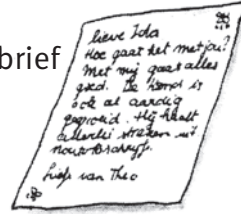 brief
lieve Ida
Hoe gaat het met jou?
Met mij gaat alles
goed. De hond is
ook al aardig
gegroeid. Hij haalt
allerlei streken uit
liefs van Theo